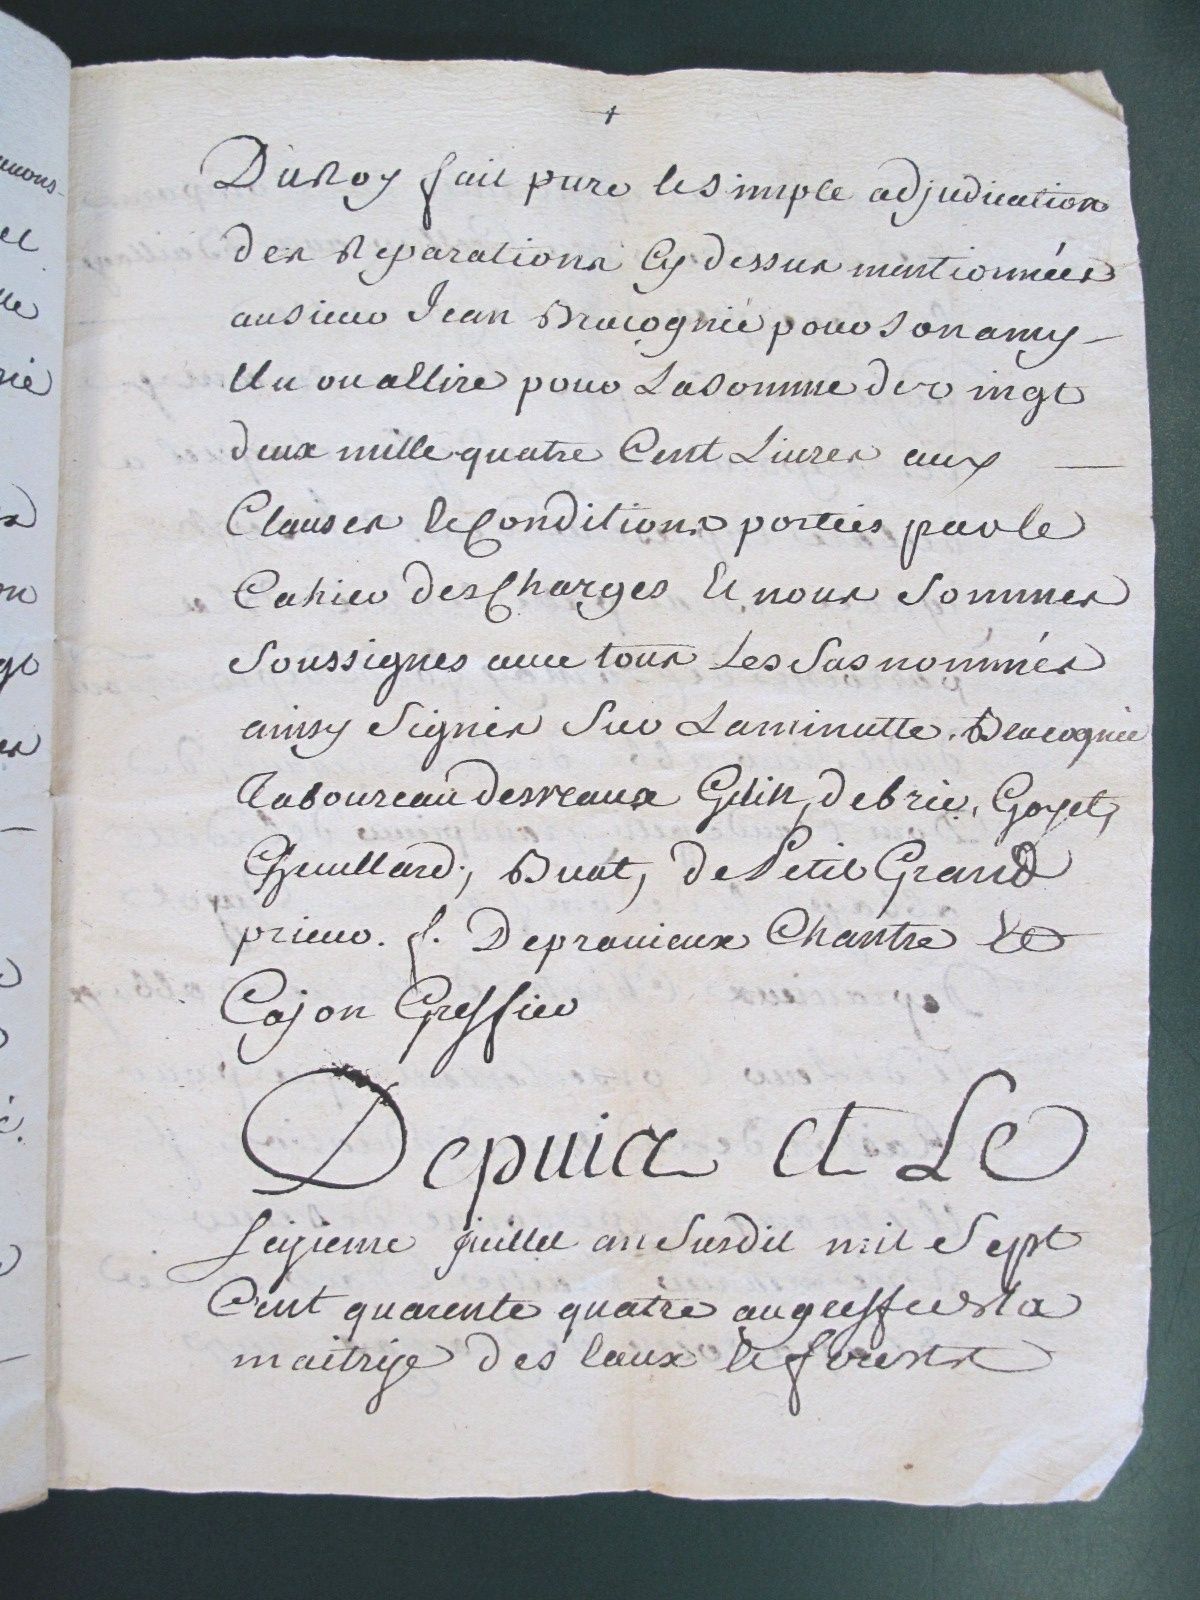 Du Roy fait pure et simple adjudication
des Reparations Cy dessus mentionnées
au sieur Jean Bracognié pour son amy
Elu ou allire pour La somme de vingt
deux mille quatre Cent Livres aux
Clauses et Conditions portées par le
Cahier des Charges Et nous sommes
soussignes avec tous Les susnommés
ainsy signés sur La minutte. Bracognié
Taboureau desreaux Gelin, debrie, Goyet,
Chuillard, Buat, de Petit Grand
prieur. f. Depravieux Chantre et
Cajon Greffier
Depuis et Le
seizieme juillet an susdit mil sept
Cent quarente quatre au greffe de la
maitrise des Eaux et forests